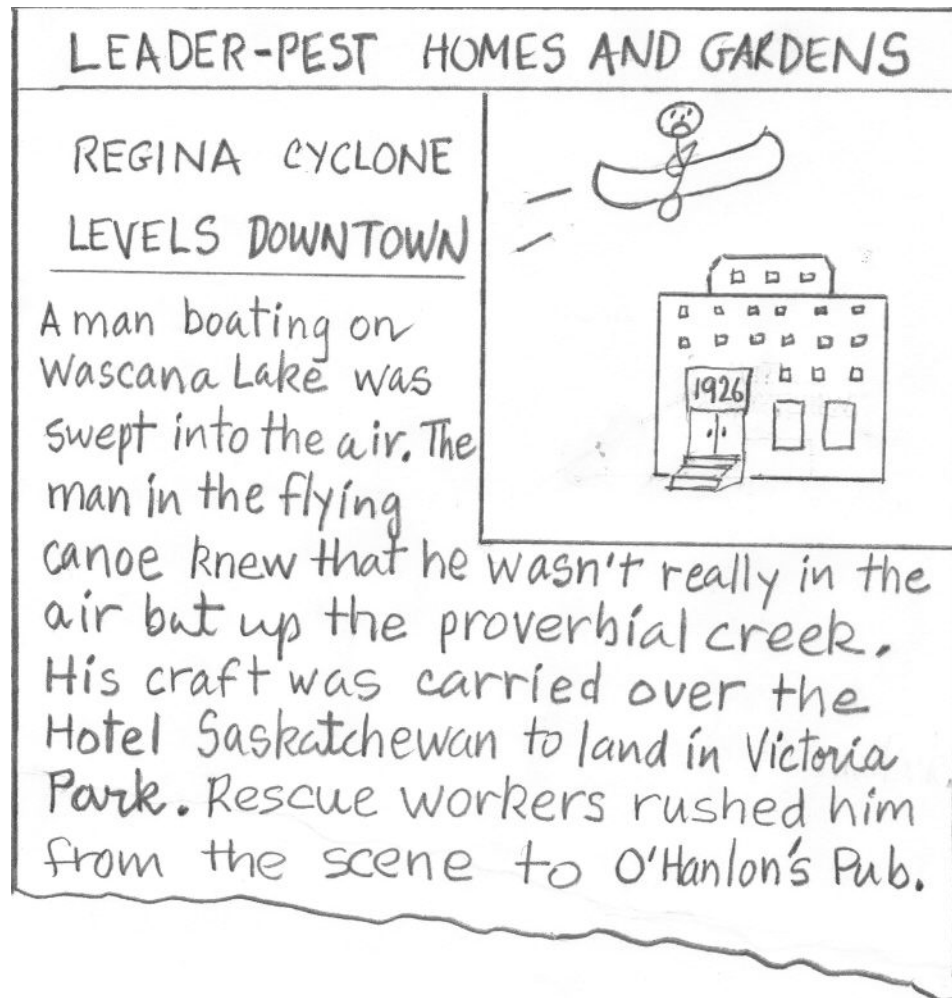 LEADER-PEST HOMES AND GARDENS
REGINA CYCLONE
LEVELS DOWNTOWN
1926
A man boating on
Wascana Lake was
swept into the air. The
man in the flying
canoe knew that he wasn't really in the
air but up the proverbial creek.
His craft was carried over the
Hotel Saskatchewan to land in Victoria
Park. Rescue workers rushed him
from the scene to O'Hanlon's Pub.